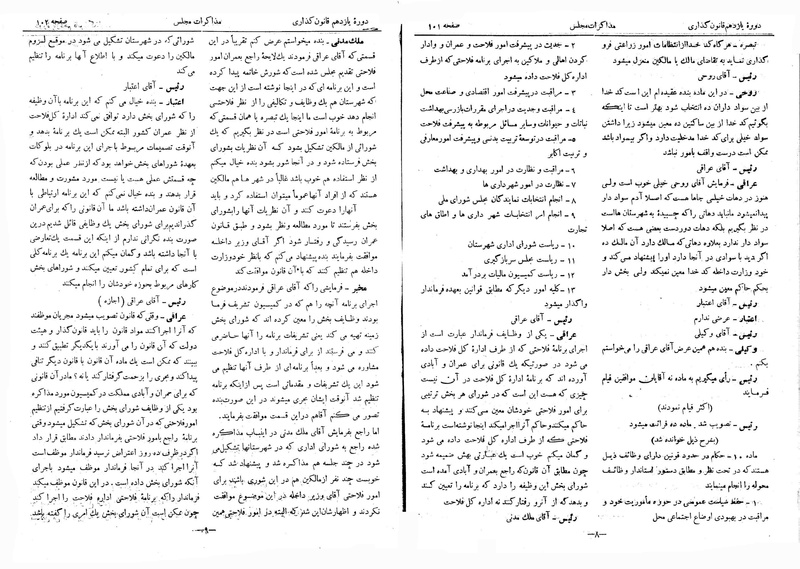 دورهٔ یازدهم قانون گذاری
مذاکرات مجلس
صفحه ۱۰۱
تبصره - هرگاه کدخدا از انتظامات امور زراعتی فرو
گذاری نماید به تقاضای مالک یا مالکین معزول میشود
رئیس - آقای روحی
روحی - در این ماده بنده عقیده‌ام این است که کدخدا
از بین سواد داران ده انتخاب شود بهتر است تا اینکه
بگوئیم کدخدا از بین ساکنین ده معین میشود زیرا داشتن
سواد خیلی برای کدخدا مدخلیت دارد و اگر بیسواد باشد
ممکن است درست واقف بامور نباشد
رئیس - آقای عراقی
عراقی - فرمایش آقای روحی خیلی خوب است ولی
در دهات خیلی جاها هست که اصلا آدم سواد دار
پیدا نمیشود مانباید دهاتی را که چسبیده به شهرستان هاست
در نظر بگیریم بلکه دهات دوردست بعضی هست که اصلا
سواد دار ندارد بعلاوه دهاتی که مالک دارد آن مالک ده
اگر دید با سوادی در آنجا دارد اورا پیشنهاد میکند و
خود وزارت داخله که کدخدا معین نمیکند ولی بخش دار
بحکم حاکم معین میشود
رئیس - آقای اعتبار
اعتبار - عرضی ندارم
رئیس - آقای وکیلی
وکیلی - بنده هم همین عرض آقای عراقی را می‌خواستم
بکنم.
رئیس - رأی میگیریم به ماده نه آقایان موافقین قیام
فرمایند
(اکثر قیام نمودند)
رئیس - تصویب شد. ماده ده قرائت میشود
(بشرح ذیل خوانده شد)
ماده ۱۰ - حکام در حدود قوانین دارای وظائف ذیل
هستند که در تحت نظر و مطابق دستور استاندار وظائف
محوله را انجام مینمایند
۱ - حفظ سیاست عمومی در حوزه مأموریت خود و
مراقبت در بهبودی اوضاع اجتماعی محل
۲ - جدیت در پیشرفت امور فلاحت و عمران و وادار
کردن اهالی و ملاکین به اجرای برنامه فلاحتی که از طرف
اداره کل فلاحت داده میشود
۳ - مراقبت در پیشرفت امور اقتصادی و صناعت محل
۴ - مراقبت و جدیت در اجرای مقررات بازرسی بهداشت
نباتات و حیوانات و سایر مسائل مربوطه به پیشرفت فلاحت
۵ - مراقبت در توسعهٔ تربیت بدنی و پیشرفت امور معارفی
و تربیت اکابر
۶ - مراقبت و نظارت در امور بهداری و بهداشت
۷ - نظارت در امور شهرداری ها
۸ - انجام انتخابات نمایندگان مجلس شورای ملی
۹ - انجام امر انتخابات شهر داری ها و اطاق های
تجارت
۱۰ - ریاست شورای اداری شهرستان
۱۱ - ریاست مجلس سربازگیری
۱۲ - ریاست کمیسیون مالیات بر درآمد
۱۳ - کلیه امور دیگر که مطابق قوانین بعهده فرماندار
واگذار میشود
رئیس - آقای عراقی
عراقی - یکی از وظایف فرماندار عبارت است از
اجرای برنامهٔ فلاحتی که از طرف ادارهٔ کل فلاحت داده
می شود در صورتیکه یک قانونی برای عمران و آبادی
آورده اند که برنامهٔ ادارهٔ کل فلاحت در آن نیست
چیزی که هست این است که در شورای هر بخش ترتیبی
برای امور فلاحتی خودشان معین می کنند و پیشنهاد به
حاکم میکنند و حاکم آنرا اجرا میکند اینجا نوشته است برنامهٔ
فلاحتی که از طرف ادارهٔ کل فلاحت داده می شود
و گمان میکنم خوب است یک عبارتی بهش ضمیمه شود
چون مطابق آن قانون که راجع بعمران و آبادی آمده است
شورای بخش این وظیفه را دارد که برنامه را تعیین کند
و بدهد که از آنرو رفتار کنند نه اداره کل فلاحت
رئیس - آقای ملک مدنی
—۸—
دورهٔ یازدهم قانون گذاری
مذاکرات مجلس
صفحه ۱۰۲
ملک مدنی - بنده میخواستم عرض کنم تقریباً در این
قسمتی که آقای عراقی فرمودند یک لایحهٔ راجع بعمران امور
فلاحتی تقدیم مجلس شده است که شورش خاتمه پیدا کرده
است و این برنامه ای که در اینجا نوشته است از این جهت
که شهرستان هم یک وظایف و تکالیفی را از نظر فلاحتی
انجام دهد خوب است ما اینجا یک تبصره یا همان قسمتی که
مربوط به برنامهٔ امور فلاحتی است در نظر بگیریم که یک
شورائی از مالکین تشکیل بشود که آن نظریات بشورای
بخش فرستاده شود و در آنجا شور بشود بنده خیال میکنم
در نظر داشتم هم خوب باشد غالباً در شهر ها هم مالکین
هستند که از افراد آنها عموماً میتوان استفاده کرد و باید
آنها را دعوت کنند و آن نظریات آنها را بشورای
بخش بفرستند تا مورد مطالعه و نظر بشود و طبق قانون
عمران رسیدگی و رفتار شود اگر آقای وزیر داخله
موافقت بفرمایند بنده پیشنهاد می‌کنم که بانظر خود وزارت
داخله هم تنظیم کنند که با آن قانون موافقت کند
مخبر - فرمایشی را که آقای عراقی فرمودند در موضوع
اجرای برنامه آنچه را هم که در کمیسیون تشریف فرما
بودند وظایف بخش را معین کرده اند که شورای بخش
زمینه تهیه می کند یعنی تشریفات برنامه را آنها حاضر می
کنند و می فرستند از برای فرماندار و با اداره کل فلاحت
مشاوره می شود و بعداً برنامه‌ای از طرف آنها تنظیم می
شود این یک تشریفات و مقدماتی است پس از اینکه برنامه
تنظیم شد آنوقت ایشان مجری میشوند در این صورت بنده
تصور می کنم آقا هم در این قسمت موافقت بفرمایند.
اما راجع بفرمایش آقای ملک مدنی در اینباب مذاکره
شده راجع به شورای اداری که در شهرستانها تشکیل می
شود در چند جلسه هم مذاکره شد و پیشنهاد شد که
خوبست چند نفر از مالکین هم در این شوری باشند برای
امور فلاحتی آقای وزیر داخله در این موضوع موافقت
نکردند و اظهارشان این شد که البته در امور فلاحتی همین
شورائی که در شهرستان تشکیل می شود در موقع لزوم
مالکین را دعوت میکند و با اطلاع آنها برنامه را تنظیم
می کند
رئیس - آقای اعتبار
اعتبار - بنده خیال می کنم که این برنامه با آن وظیفه
را که شورای بخش دارد توافق نمی کند ادارهٔ کل فلاحت
از نظر عمران کشور البته ممکن است یک برنامهٔ بدهد و
آنوقت تصمیمات مربوط باجرای این برنامه در بلوکات
بعهدهٔ شوراهای بخش خواهد بود که از نظر عملی بودن که
چه قسمتش عملی هست یا نیست مورد مشورت و مطالعه
قرار بدهند و بنده خیال نمی کنم که این برنامه ارتباطی با
آن قانون عمران داشته باشد ما آن قانونی را که برای عمران
گذراندیم برای شورای بخش یک وظایفی قائل شدیم در این
صورت بنده نگرانی ندارم از اینکه این قسمت یک تعارضی
با آنجا داشته باشد و گمان میکنم این برنامه یک برنامه کلی
است که برای تمام کشور تعیین میکند و شوراهای بخش
کارهای مربوط بحوزه خودشان را انجام میکنند
رئیس - آقای عراقی (اجازه)
عراقی - وقتی که قانون تصویب میشود مجریان موظفند
که آنرا اجرا کنند مواد قانون را باید قانون گذار و هیئت
دولت که آن قانون را می آورند با یکدیگر تطبیق کنند و
ببینند که ممکن است یک ماده آن قانون با قانون دیگر تنافی
پیدا کند و مجری را بزحمت گرفتار کند یا نه؟ مادر آن قانونی
که برای عمران و آبادی مملکت در کمیسیون مورد مذاکره
بود یکی از وظایف شورای بخش را عبارت گرفتیم از تنظیم
امور فلاحتی که در آن شورای بخش که تشکیل میشود وقتی
برنامهٔ راجع بامور فلاحتی بفرماندار دادند مطابق قرار داد
اگر در ظرف ده روز اعتراض نرسید فرماندار موظف است
آنرا اجرا کند در آنجا فرماندار موظف میشود باجرای
آنکه شورای بخش داده است. در این قانون موظف میکند
فرماندار را که برنامهٔ فلاحتی اداره فلاحت را اجرا کند
چون ممکن است آن شورای بخش یک امری را گفته باشد
—۹—